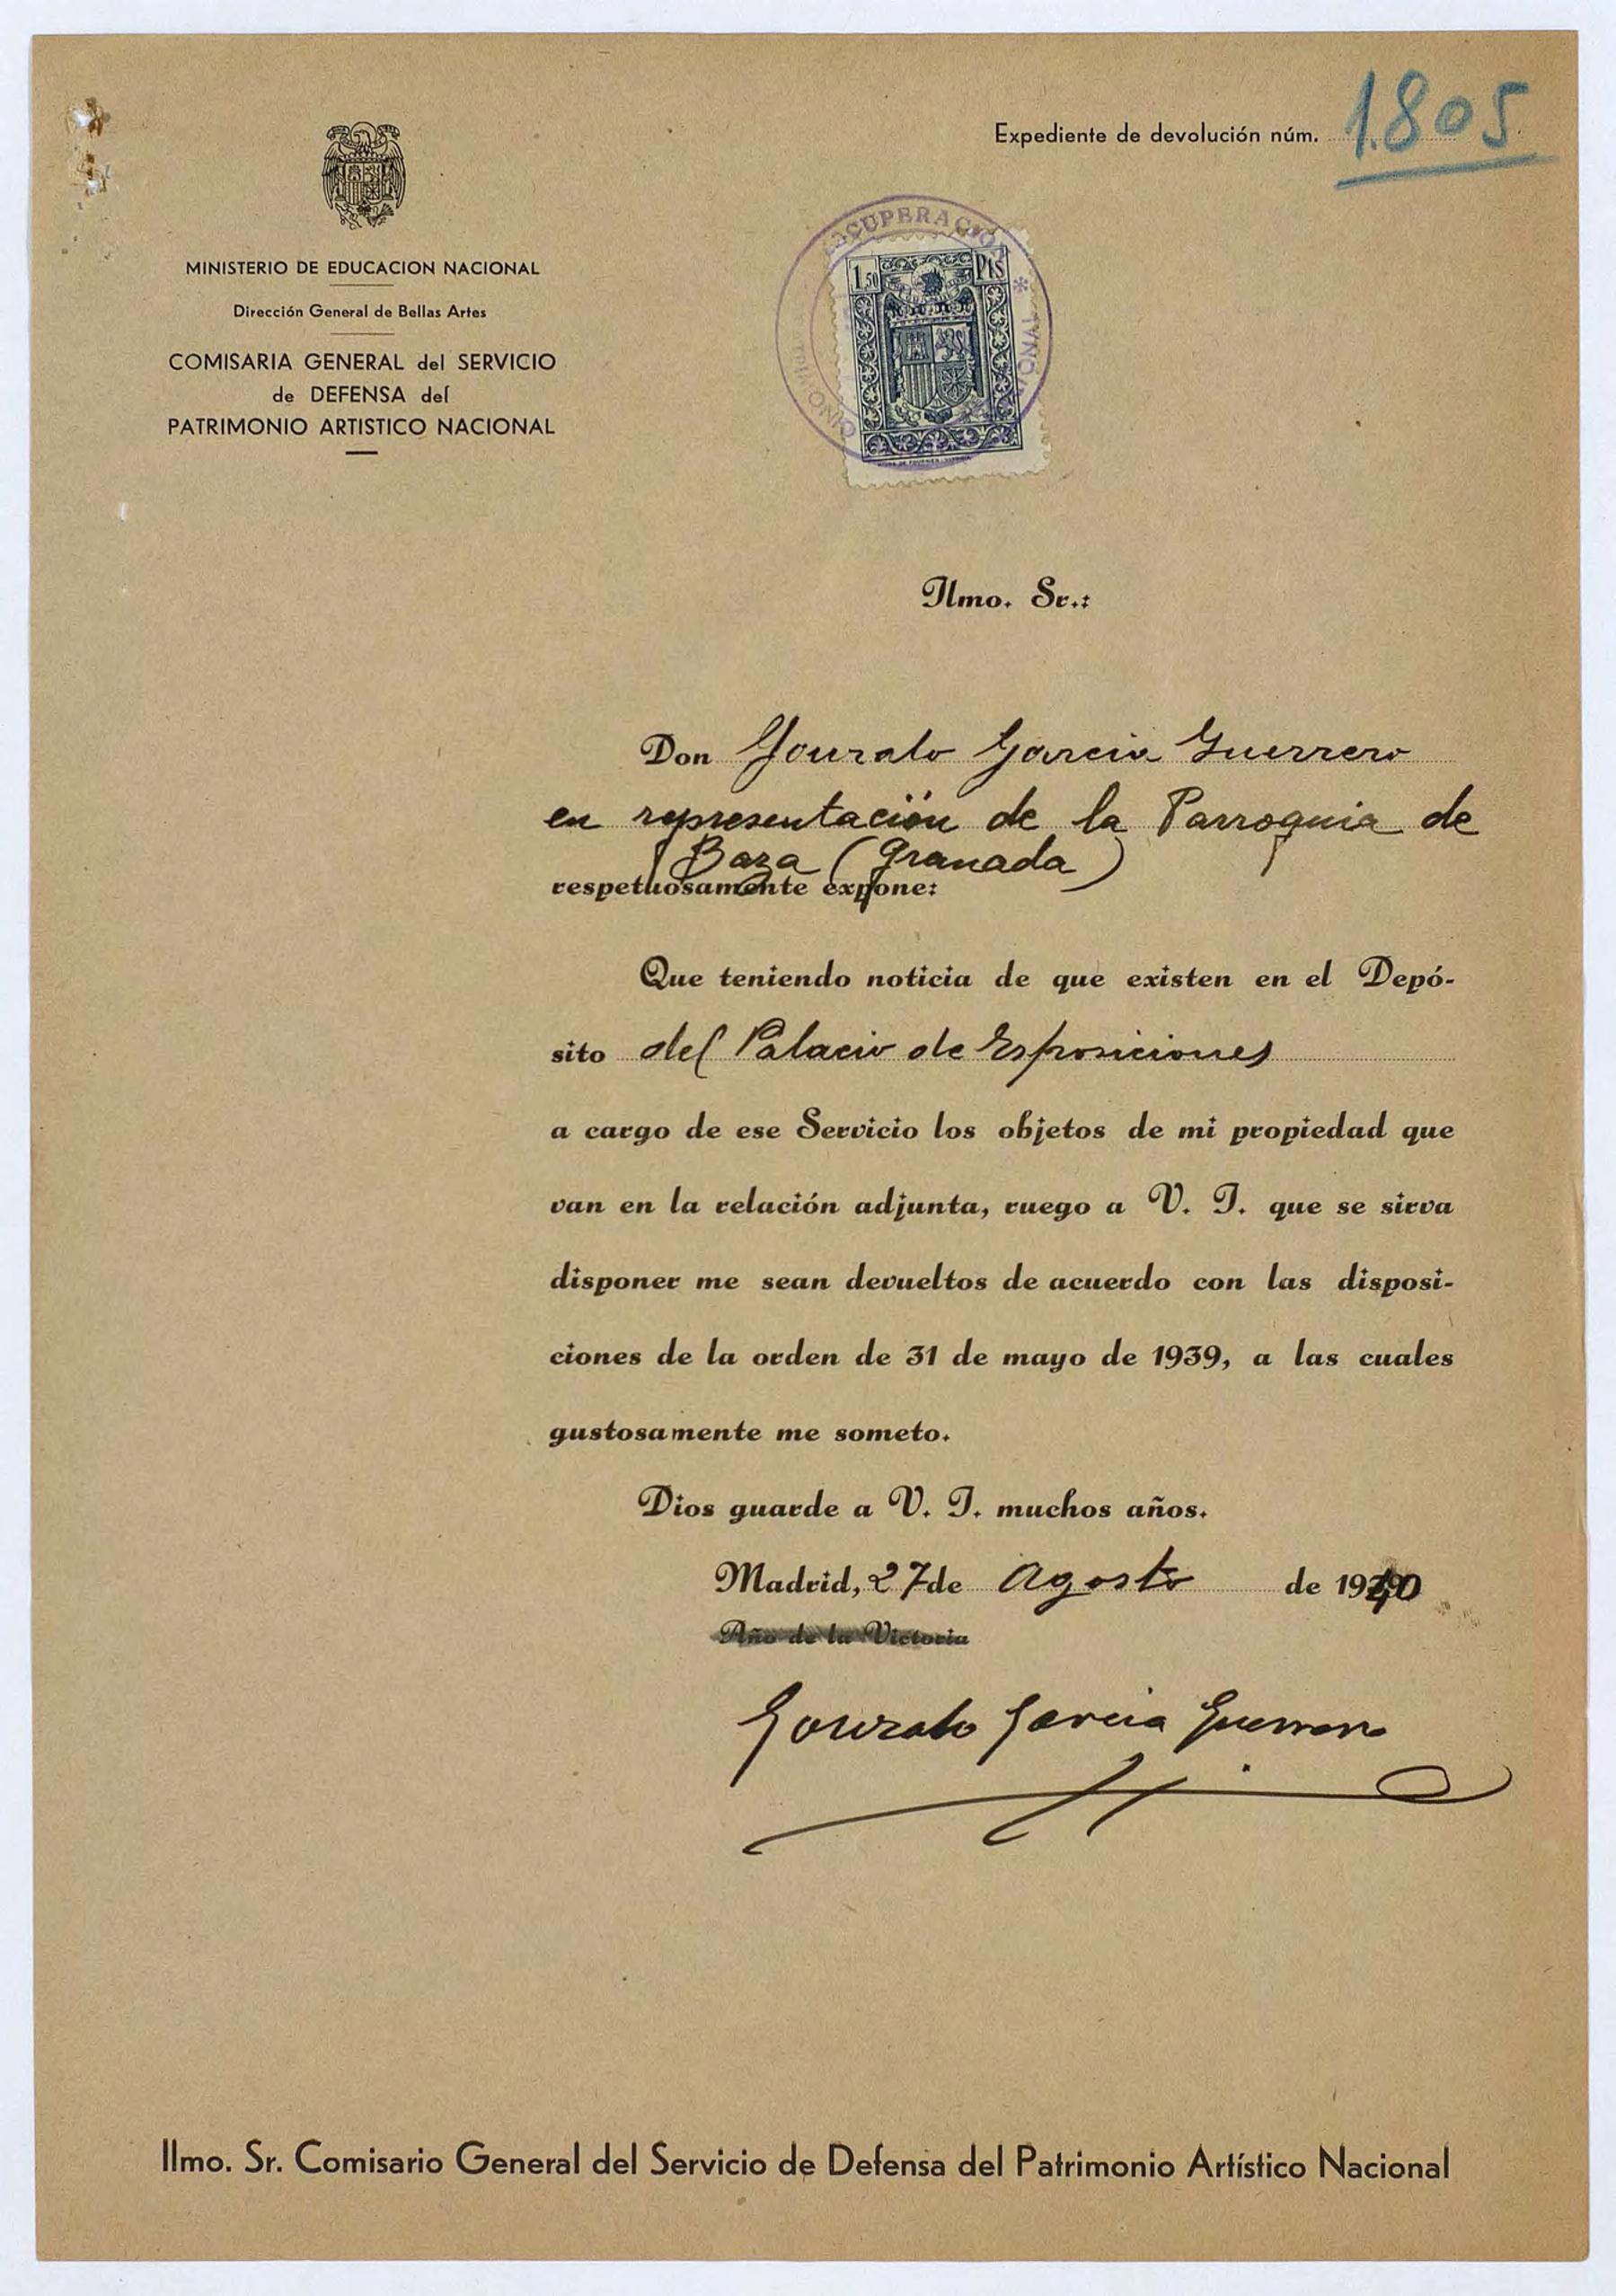 Expediente de devolución núm. 1.805
MINISTERIO DE EDUCACION NACIONAL
Dirección General de Bellas Artes
COMISARIA GENERAL del SERVICIO
de DEFENSA del
PATRIMONIO ARTISTICO NACIONAL
RECUPERACIÓ
1,50 Pts
Ilmo. Sr.:
Don Gonzalo Garcia Guerrero
en representación de la Parroquia de
Baza (Granada)
respetuosamente expone:
Que teniendo noticia de que existen en el Depó-
sito del Palacio de Exposiciones
a cargo de ese Servicio los objetos de mi propiedad que
van en la relación adjunta, ruego a V. I. que se sirva
disponer me sean devueltos de acuerdo con las disposi-
ciones de la orden de 31 de mayo de 1939, a las cuales
gustosamente me someto.
Dios guarde a V. I. muchos años.
Madrid, 27 de Agosto de 1940
Año de la Victoria
Gonzalo Garcia Guerrero
Ilmo. Sr. Comisario General del Servicio de Defensa del Patrimonio Artístico Nacional